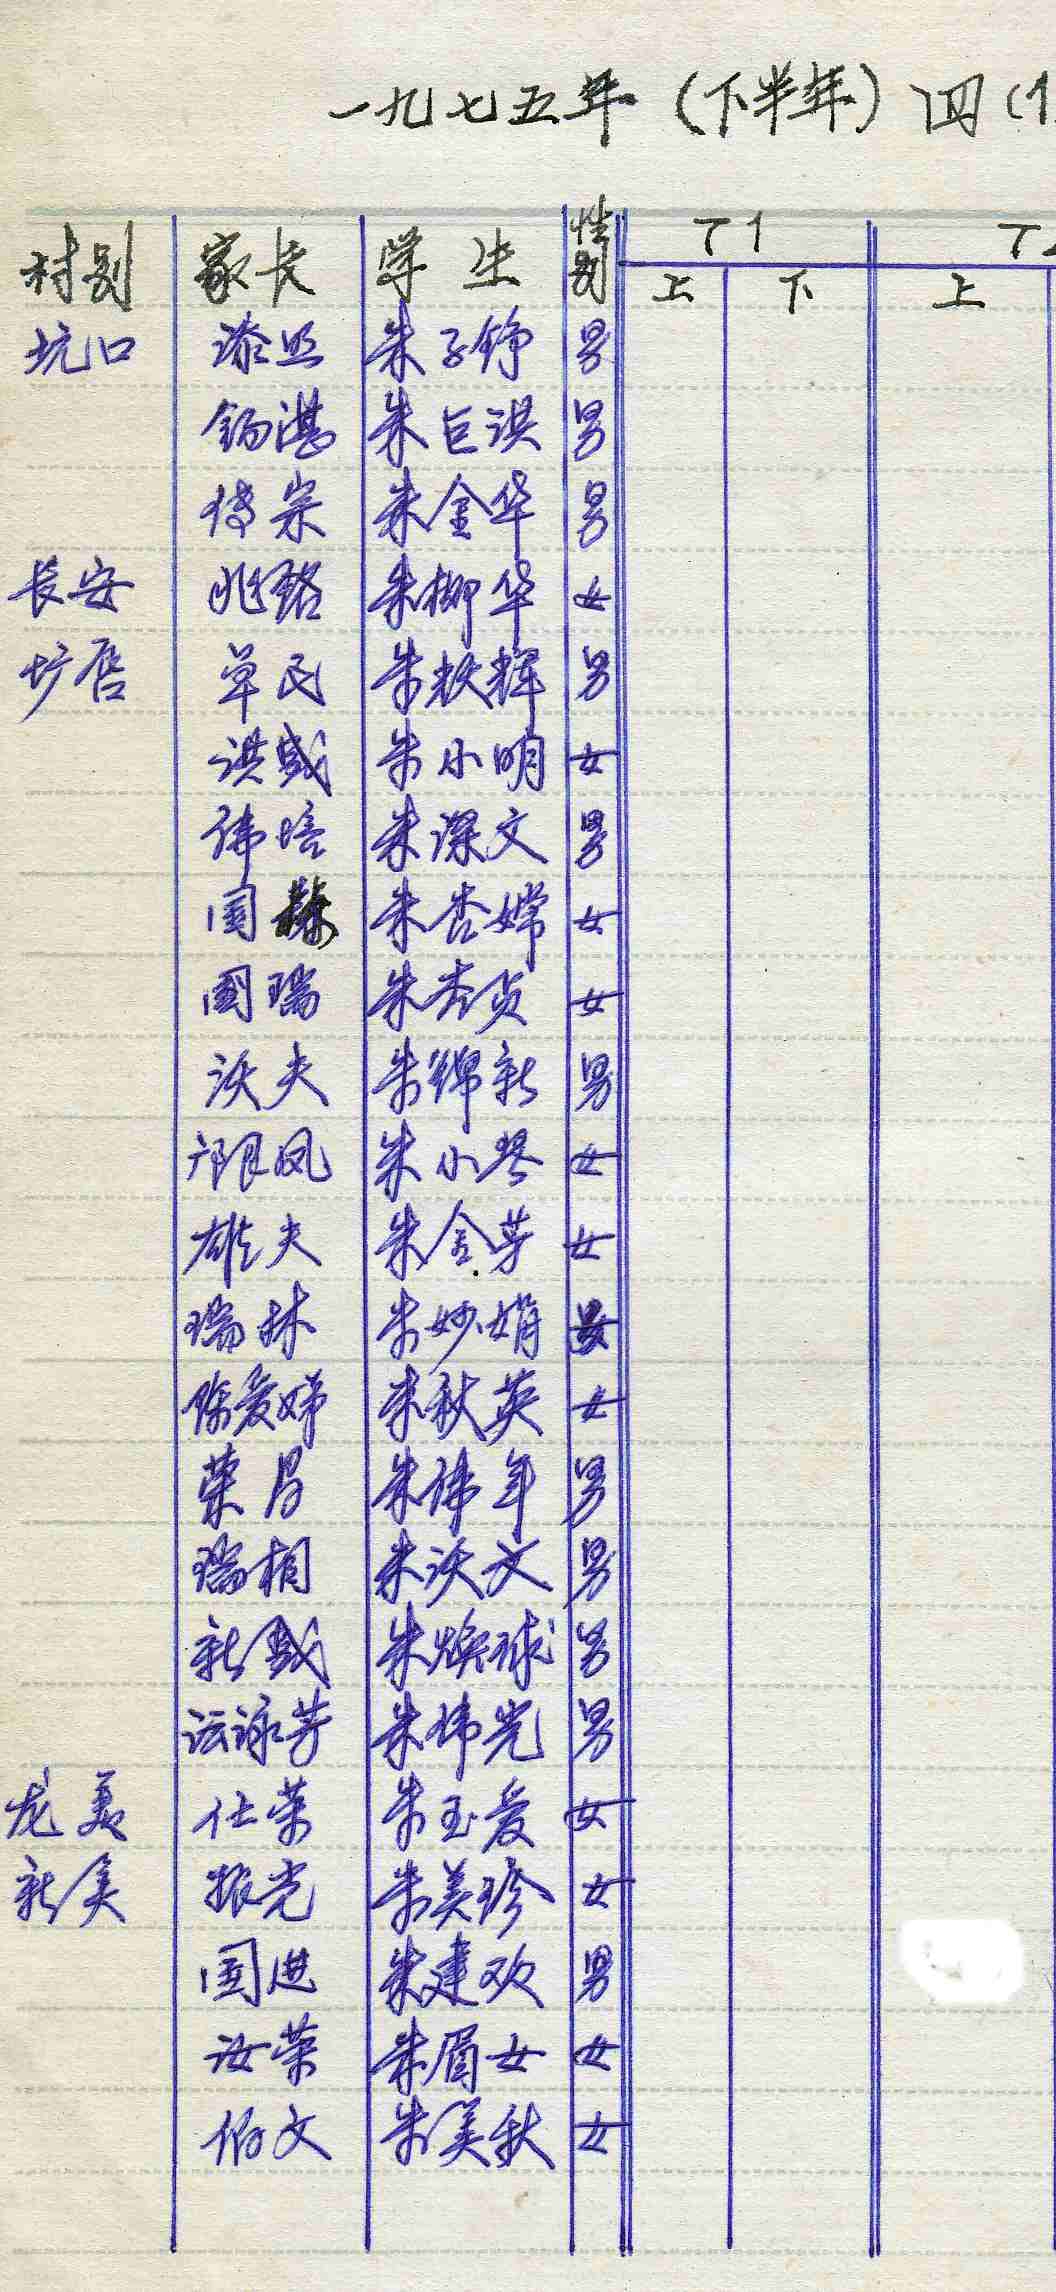 一九七五年（下半年）四（1
村别 家长 学生 性别 T1 T
上 下 上
坑口 朱子铮 男
锡湛 朱巨洪 男
传宗 朱金华 男
长安 兆铭 朱柳华 女
圹唇 草民 朱秋辉 男
洪盛 朱小明 女
伟培 朱深文 男
国 朱杏嫦 女
国瑞 朱杏贞 女
沃夫 朱锦新 男
凤 朱小琴 女
雄夫 朱金芳 女
瑞林 朱妙娟
陈爱娣 朱秋英 女
荣昌 朱伟年 男
瑞相 朱沃文 男
新盛 朱焕球 男
咏芳 朱炜光 男
龙美 仕荣 朱玉爱 女
新美 振光 朱美珍 女
国进 朱建欢 男
汝荣 朱眉女 女
伯文 朱美秋 女